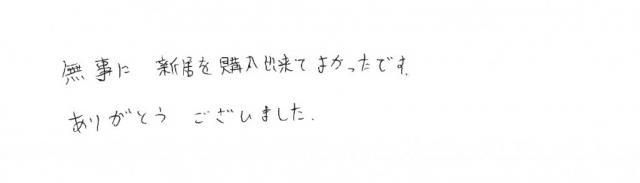 無事に 新居を購入出来てよかったです。
ありがとう ございました.